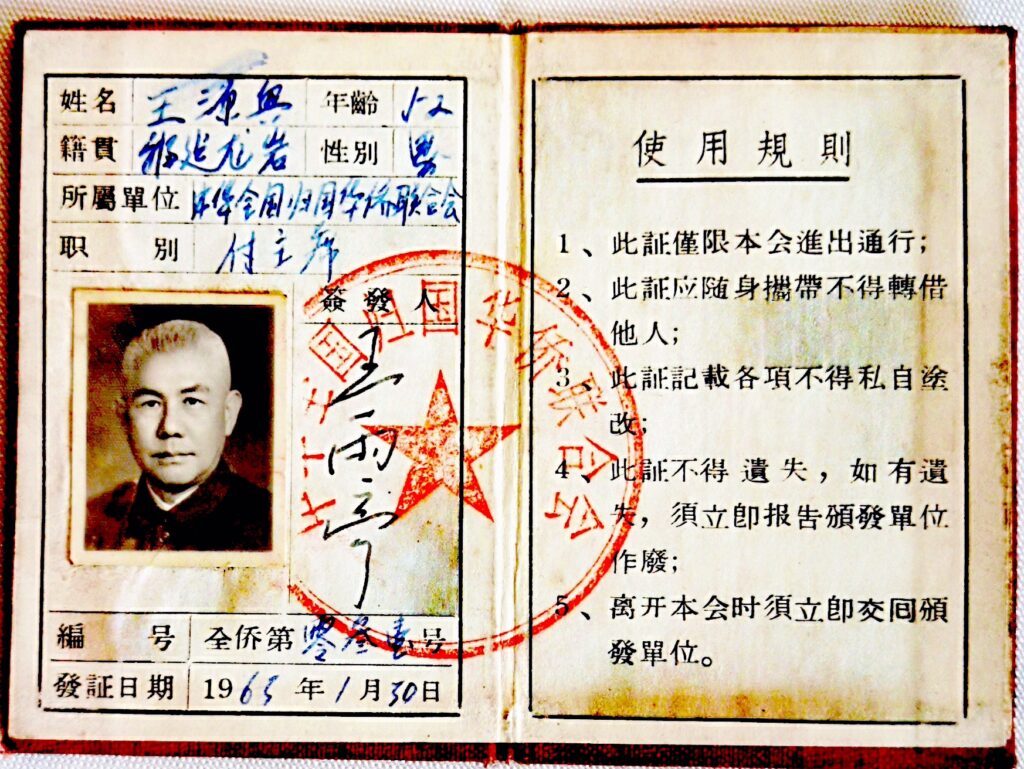 姓名 王源興 年齡 52
籍貫 福建龙岩 性別 男
所屬單位 中华全国归国华侨联合会
职 別 付主席
簽發人
王雨亭
中华全国归国华侨联合会
編 号 全侨第零叁壹号
發証日期 1963年1月30日
使用規則
1、此証僅限本会進出通行；
2、此証应随身攜帶不得轉借
他人；
3、此証記載各項不得私自塗
改；
4、此証不得遺失，如有遺
失，須立卽报告頒發單位
作廢；
5、离开本会时須立卽交囘頒
發單位。